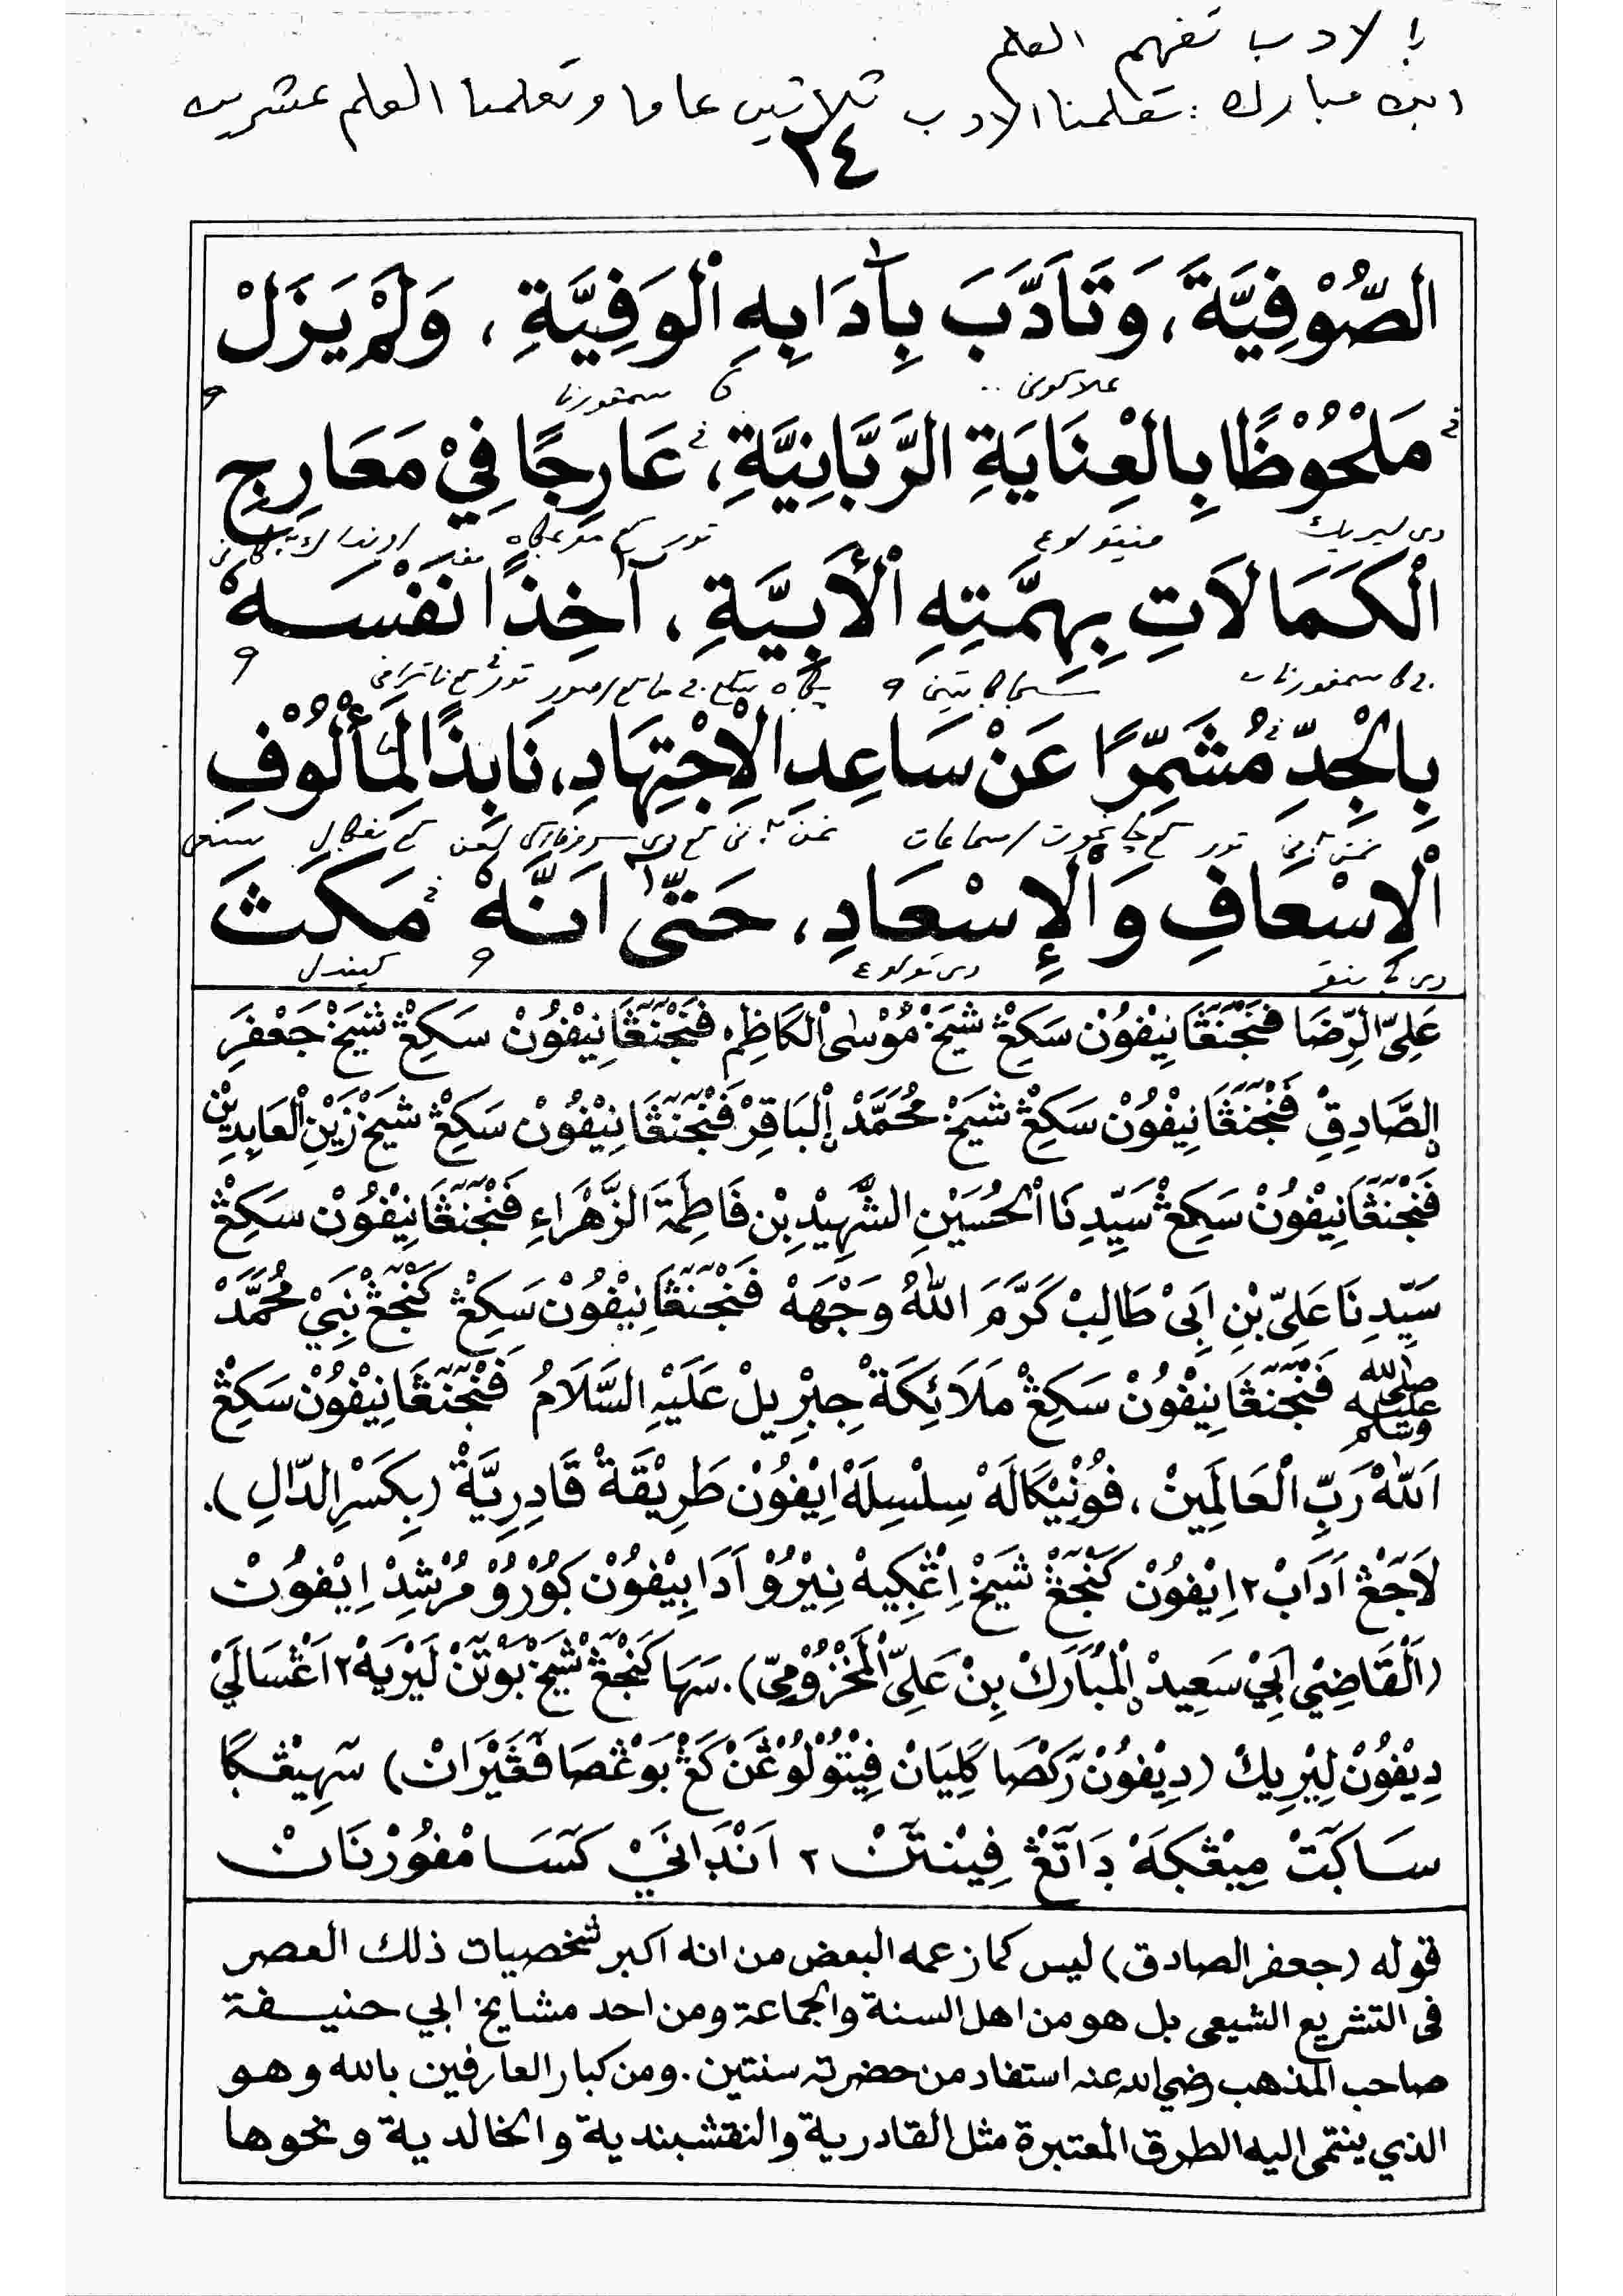 بالادب تفهم العلم
ابن مبارك : تعلمنا الادب ثلاثين عاما وتعلمنا العلم عشرين
٢٤
الصُّوْفِيَّةَ، وَتَاَدَّبَ بِاٰدَابِهِ الْوَفِيَّةِ، وَلَمْ يَزَلْ
مَلْحُوْظًا بِالْعِنَايَةِ الرَّبَّانِيَّةِ، عَارِجًا فِيْ مَعَارِجِ
الْكَمَالَاتِ بِهِمَّتِهِ الْأَبِيَّةِ، آخِذًا نَفْسَهُ
بِالْجِدِّ مُشَمِّرًا عَنْ سَاعِدِ الْاِجْتِهَادِ، نَابِذًا لِمَأْلُوْفِ
الْاِسْعَافِ وَالْإِسْعَادِ، حَتّٰى اَنَّهُ مَكَثَ
عَلِيّ الرِّضَا فَنْجَنَڠَانِيْفُوْنْ سَكِڠْ شَيَخْ مُوْسٰى الْكَاظِمِ فَنْجَنَڠَانِيْفُوْنْ سَكِڠْ شَيَخْ جَعْفَرِ
الصَّادِقِ فَنْجَنَڠَانِيْفُوْنْ سَكِڠْ شَيَخْ مُحَمَّدْ اِلْبَاقِرْ فَنْجَنَڠَانِيْفُوْنْ سَكِڠْ شَيَخْ زَيْنِ الْعَابِدِيْنْ
فَنْجَنَڠَانِيْفُوْنْ سَكِڠْ سَيِّدِنَا الْحُسَيْنِ الشَّهِيْدِ بِنْ فَاطِمَةَ الزَّهْرَاءِ فَنْجَنَڠَانِيْفُوْنْ سَكِڠْ
سَيِّدِنَا عَلِيّ بْنِ اَبِىْ طَالِبْ كَرَّمَ اللهُ وَجْهَهْ فَنْجَنَڠَانِيْفُوْنْ سَكِڠْ كَنْجَڠْ نَبِيْ مُحَمَّدْ
صلى الله عليه وسلم فَنْجَنَڠَانِيْفُوْنْ سَكِڠْ مَلَائِكَةْ جِبْرِيلْ عَلَيْهِ السَّلَامُ فَنْجَنَڠَانِيْفُوْنْ سَكِڠْ
اَللهْ رَبِّ الْعَالَمِيْنْ، فُوْنِيْكَالَهْ سِلْسِلَهْ اِيْفُوْنْ طَرِيْقَةْ قَادِرِيَّةْ (بِكَسْرِ الدَّالِ).
لَاجَڠْ اَدَابْ٢ اِيْفُوْنْ كَنْجَڠْ شَيَخْ اِڠْكِيهْ نِيْرُوْ اَدَابِيْفُوْنْ كُوْرُوْ مُرْشِدْ اِيْفُوْنْ
(اَلْقَاضِيْ اَبِيْ سَعِيدْ اِلْمُبَارَكْ بِنْ عَلِيّ الْمَخْزُوْمِيّ). سَهَا كَنْجَڠْ شَيَخْ بَوْتَنْ لَيْرَيَهْ٢ اَڠْسَالَيْ
دِيْفُوْنْ لِيْرِيكْ (دِيْفُوْنْ رَكْصَا كَلِيَانْ فِيْتُوْلُوْڠَنْ كَڠْ بَوْڠْصَا فَڠَيْرَانْ) سَهِيْڠْكَا
سَاكَتْ مِيڠْكَهْ دَاتَڠْ فِيْنتَنْ ٢ اَنْدَانَيْ كَسَامْفُوْرْنَانْ
قوله (جعفر الصادق) ليس كما زعمه البعض من انه اكبر شخصيات ذلك العصر
فى التشريع الشيعى بل هو من اهل السنة والجماعة ومن احد مشايخ ابي حنيفة
صاحب المذهب رضي الله عنه استفاد من حضرته سنتين. ومن كبار العارفين بالله وهو
الذي ينتمى اليه الطرق المعتبرة مثل القادرية والنقشبندية والخالدية ونحوها